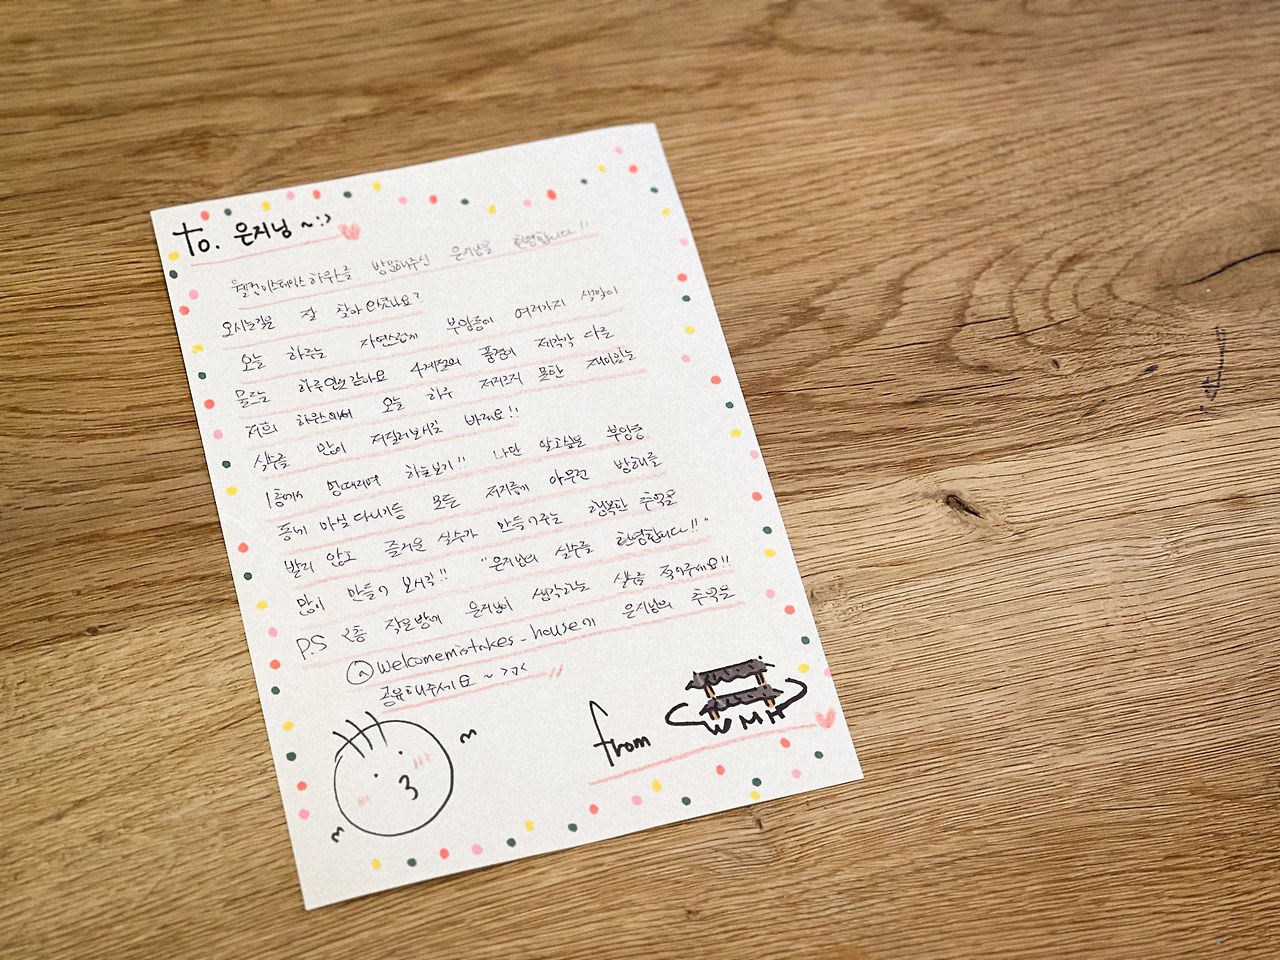 To. 은지님 ~:)
웰컴미스테익스하우스를 방문해주신 은지님을 환영합니다!!
오시는길은 잘 찾아오셨나요?
오늘 하루는 자연스럽게 부암동에 여러가지 색깔이
물드는 하루인것 같아요 4계절의 풍경이 제각각 다른
저희 하우스에서 오늘 하루 저지르지 못한 재미있는
실수를 많이 저질러보시길 바래요!!
1층에서 멍때리며 하늘보기!! 나만 알고싶은 부암동
동네 마실 다니기등 모든 저지름에 아무런 방해를
받지 않고 즐거운 실수가 만들어주는 행복한 추억을
많이 만들어 보시길!! "은지님의 실수를 환영합니다!!"
P.S 2층 작은방에 은지님이 생각하는 실수를 적어주세요!!
@welcomemistakes_house에 은지님의 추억을
공유해주세요~
from WMH